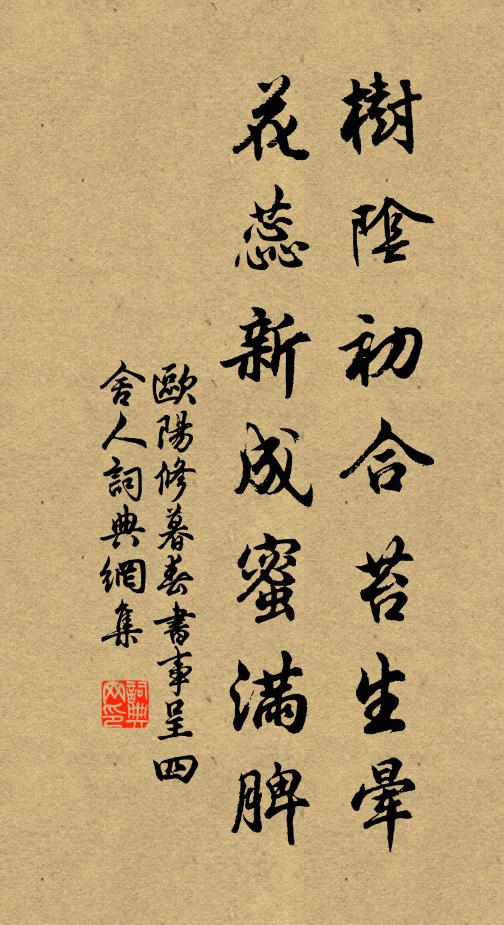 樹陰初合苔生暈
花蕊新成蜜滿脾
歐陽修暮春書事呈四
舍人詞典網集
詞典網印